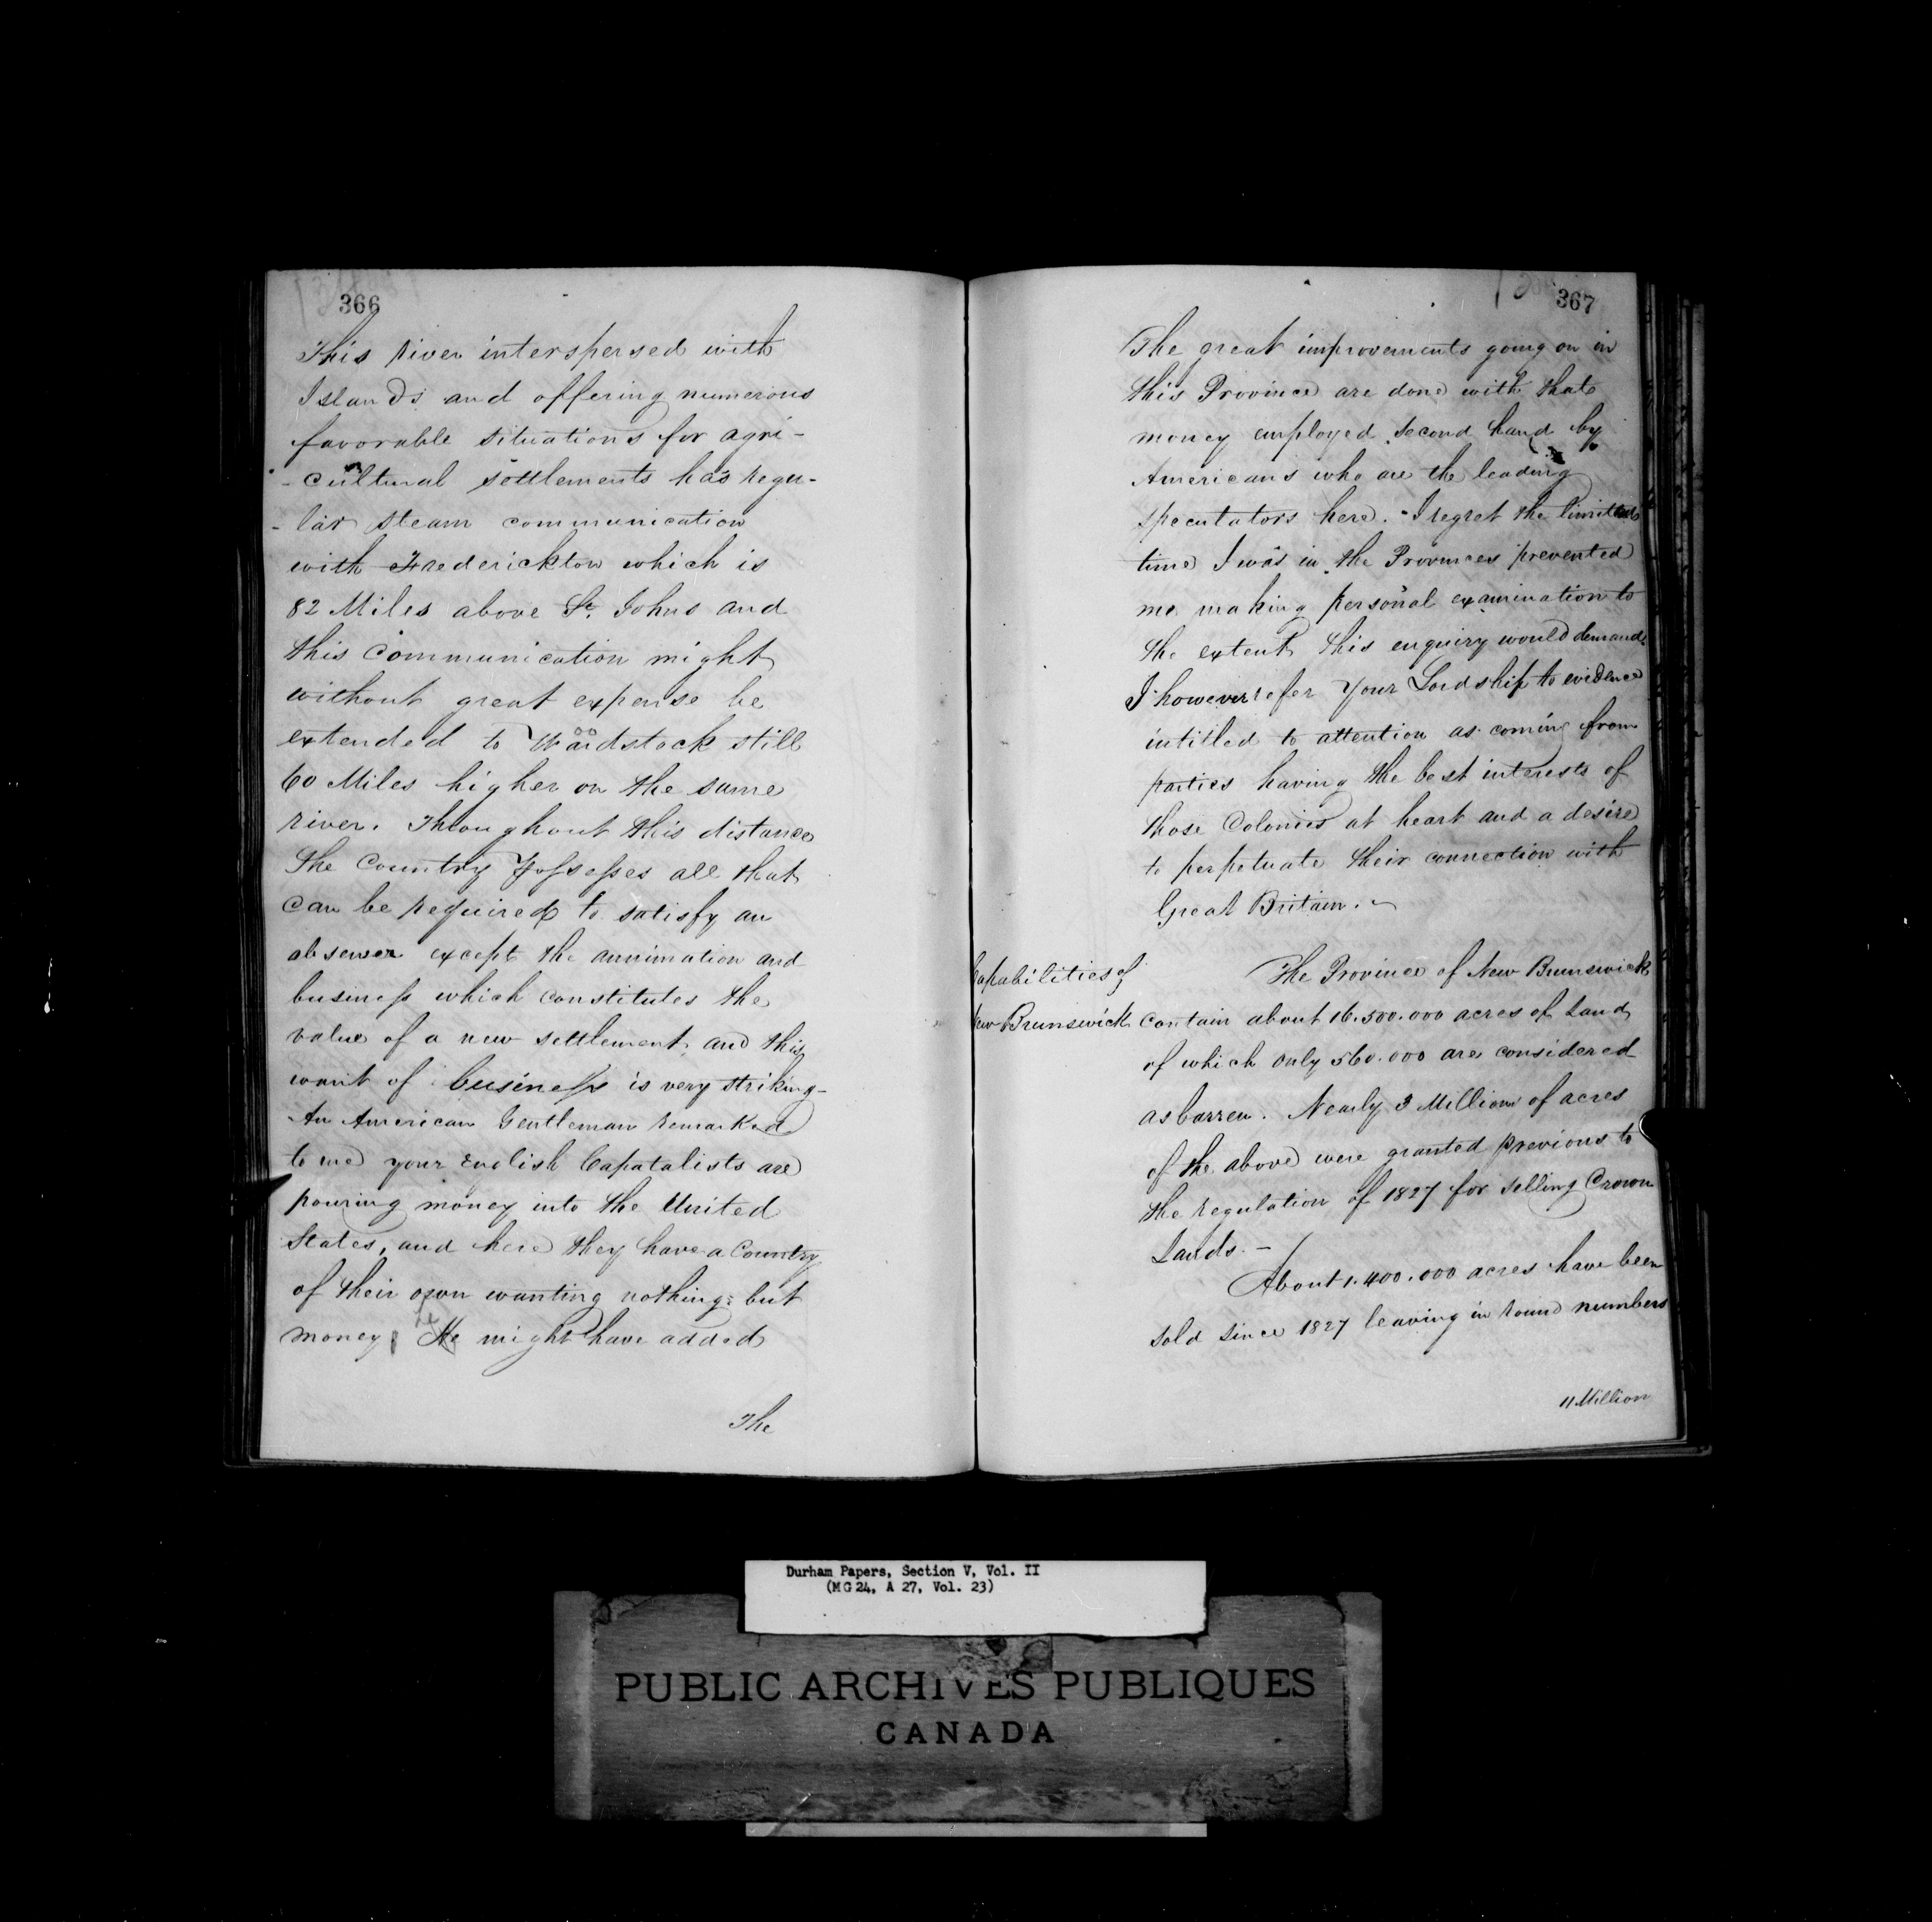 366
This river interspersed with
Islands and offering numerous
favorable situations for agri-
-cultural settlements has regu-
-lar steam communication
with Frederickton which is
82 Miles above St. Johns and
this Communication might
without great expense be
extended to Woodstock still
60 Miles higher on the same
river. Throughout this distance
the Country possesses all that
can be required to satisfy an
abserver except the annimation and
business which constitutes the
value of a new settlement and this
want of business is very striking-
An American Gentleman remarked
to me your English Capatalists are
pouring money into the United
States, and here they have a Country
of their own wanting nothing but
money He might have added
The
367
The great improvements going on in
this Province are done with that
money employed second hand by
Americans who are the leading
specutators here. - I regret the limited
time I was in the Provinces prevented
me making personal examination to
the extent this enquiry would demand
I however refer Your Lordship to evidence
intitled to attention as coming from
parties having the best interests of
those Colonies at heart and a desire
to perpetuate their connection with
Great Britain. -
Capabilities of
New Brunswick
The Province of New Brunswick
contain about 16.500.000 acres of Land
of which only 560.000 are considered
as barren. Nearly 3 Millions of acres
of the above were granted previous to
the regulation of 1827 for selling Crown
Lands. -
About 1.400.000 acres have been
sold since 1827 leaving in round numbers
11 Million
Durham Papers, Section V, Vol. II
(MG 24, A 27, Vol. 23)
PUBLIC ARCHIVES PUBLIQUES
CANADA